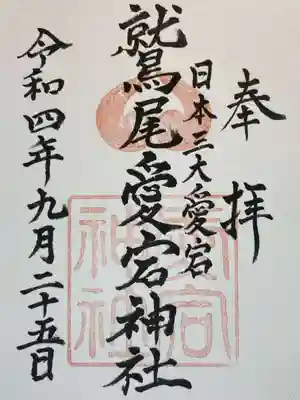 奉拝
日本三大愛宕
鷲尾愛宕神社
令和四年九月二十五日
愛宕神社